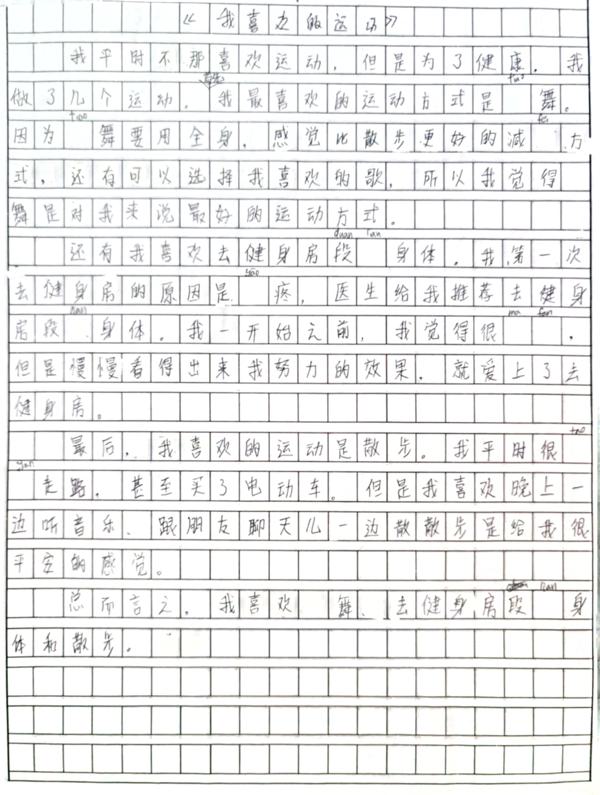 《我喜欢的运动》
我平时不那喜欢运动，但是为了健康，我
做了几个运动。我最喜欢的运动方式是tiao舞。
因为tiao舞要用全身，感觉比散步更好的减fei方
式，还有可以选择我喜欢的歌，所以我觉得
舞是对我来说最好的运动方式。
还有我喜欢去健身房段lian身体。我第一次
去健身房的原因是yao疼，医生给我推荐去健身
房段lian身体。我一开始之前，我觉得很ma fan，
但是慢慢看得出来我努力的效果，就爱上了去
健身房。
最后，我喜欢的运动是散步。我平时很tao
yan走路，甚至买了电动车。但是我喜欢晚上一
边听音乐、跟朋友聊天儿一边散散步是给我很
平安的感觉。
总而言之，我喜欢 舞、去健身房段lian身
体和散步。